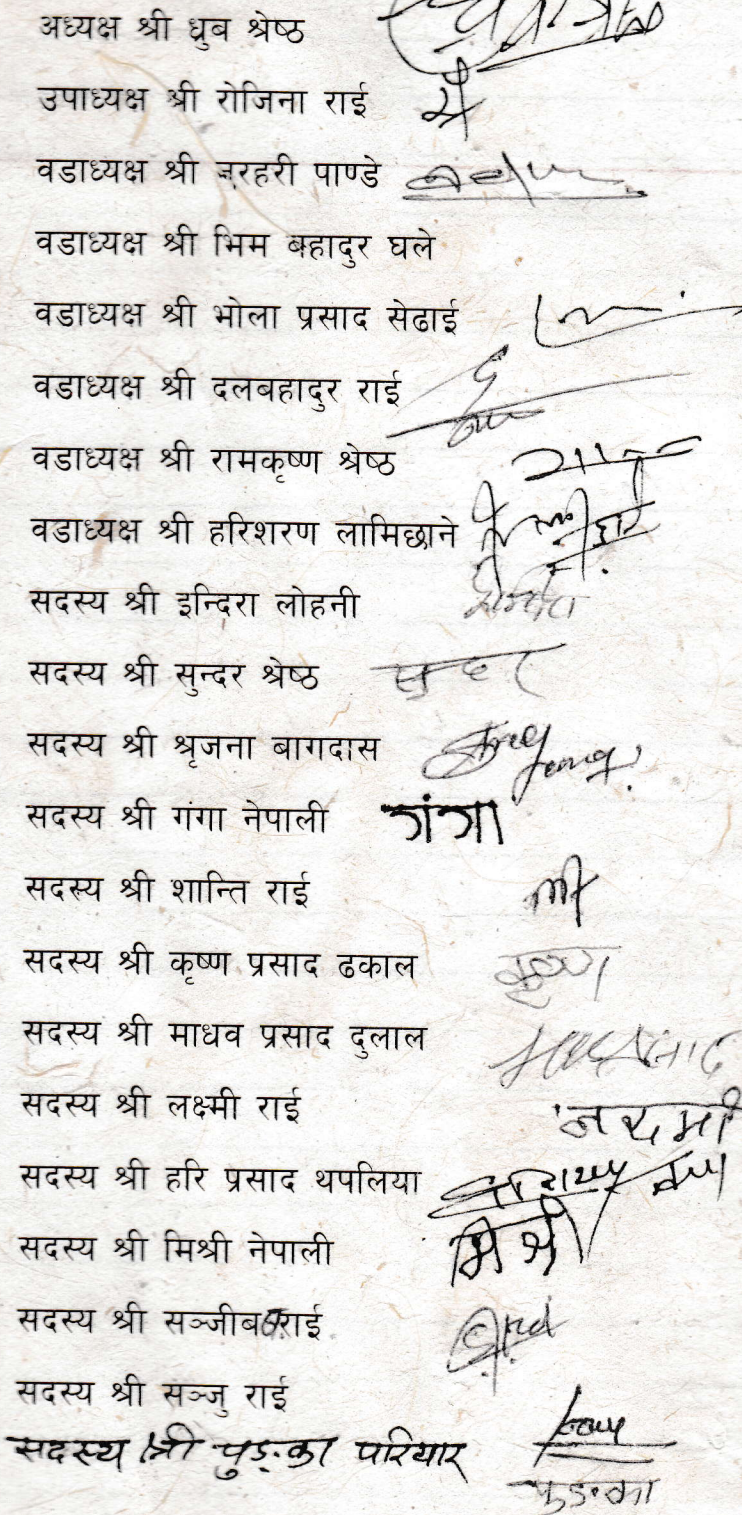 अध्यक्ष श्री ध्रुब श्रेष्ठ
उपाध्यक्ष श्री रोजिना राई
वडाध्यक्ष श्री नरहरी पाण्डे
वडाध्यक्ष श्री भिम बहादुर घले
वडाध्यक्ष श्री भोला प्रसाद सेढाई
वडाध्यक्ष श्री दलबहादुर राई
वडाध्यक्ष श्री रामकृष्ण श्रेष्ठ
वडाध्यक्ष श्री हरिशरण लामिछाने
सदस्य श्री इन्दिरा लोहनी
सदस्य श्री सुन्दर श्रेष्ठ सुन्दर
सदस्य श्री श्रृजना बागदास
सदस्य श्री गंगा नेपाली गंगा
सदस्य श्री शान्ति राई
सदस्य श्री कृष्ण प्रसाद ढकाल कृष्ण
सदस्य श्री माधव प्रसाद दुलाल
सदस्य श्री लक्ष्मी राई
सदस्य श्री हरि प्रसाद थपलिया
सदस्य श्री मिश्री नेपाली मिश्री
सदस्य श्री सञ्जीब राई
सदस्य श्री सञ्जु राई
सदस्य श्री पुड्का परियार